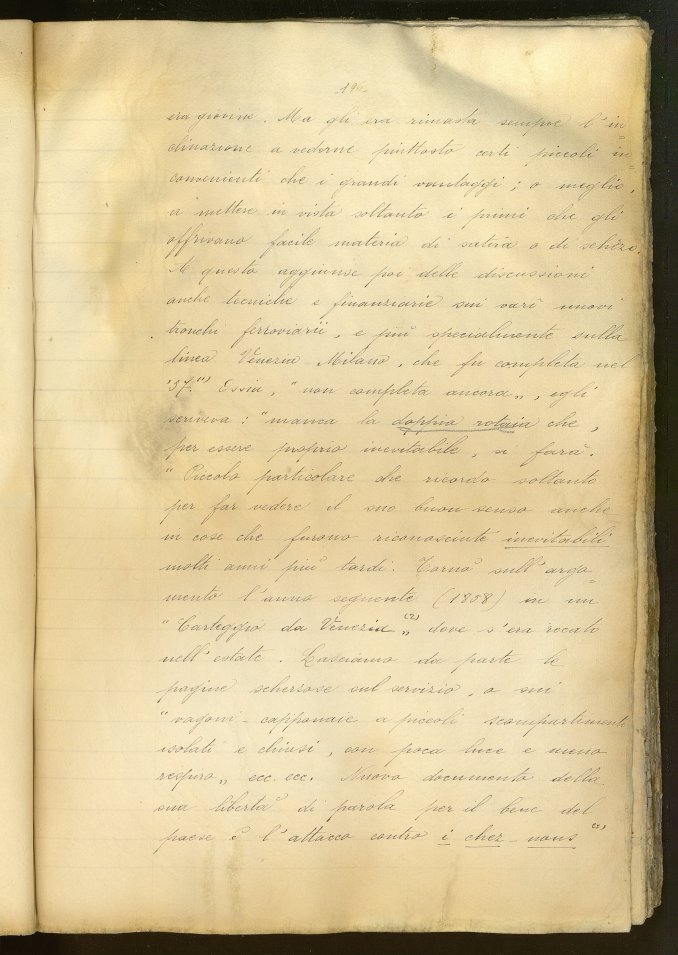 196
era giovine. Ma gli era rimasta sempre l'in=
clinazione a vederne piuttosto certi piccoli in=
convenienti che i grandi vantaggi; o meglio,
a mettere in vista soltanto i primi che gli
offrivano facile materia di satira o di scherzo.
A questo aggiunse poi delle discussioni
anche tecniche e finanziarie sui varî nuovi
tronchi ferroviarii, e più specialmente sulla
linea Venezia-Milano, che fu completa nel
'57.(1) Ossia, "non completa ancora", egli
scriveva: "manca la doppia rotaia che,
per essere proprio inevitabile, si farà.
" Piccolo particolare che ricordo soltanto
per far vedere il suo buon senso anche
in cose che furono riconosciute inevitabili
molti anni più tardi. Tornò sull'argo=
mento l'anno seguente (1858) in un
"Carteggio da Venezia"(2) dove s'era recato
nell'estate. Lasciamo da parte le
pagine scherzose sul servizio, o sui
"vagoni-capponaie a piccoli scompartimenti
isolati e chiusi, con poca luce e meno
respiro" ecc. ecc. Nuovo documento della
sua libertà di parola per il bene del
paese è l'attacco contro i chez-nous